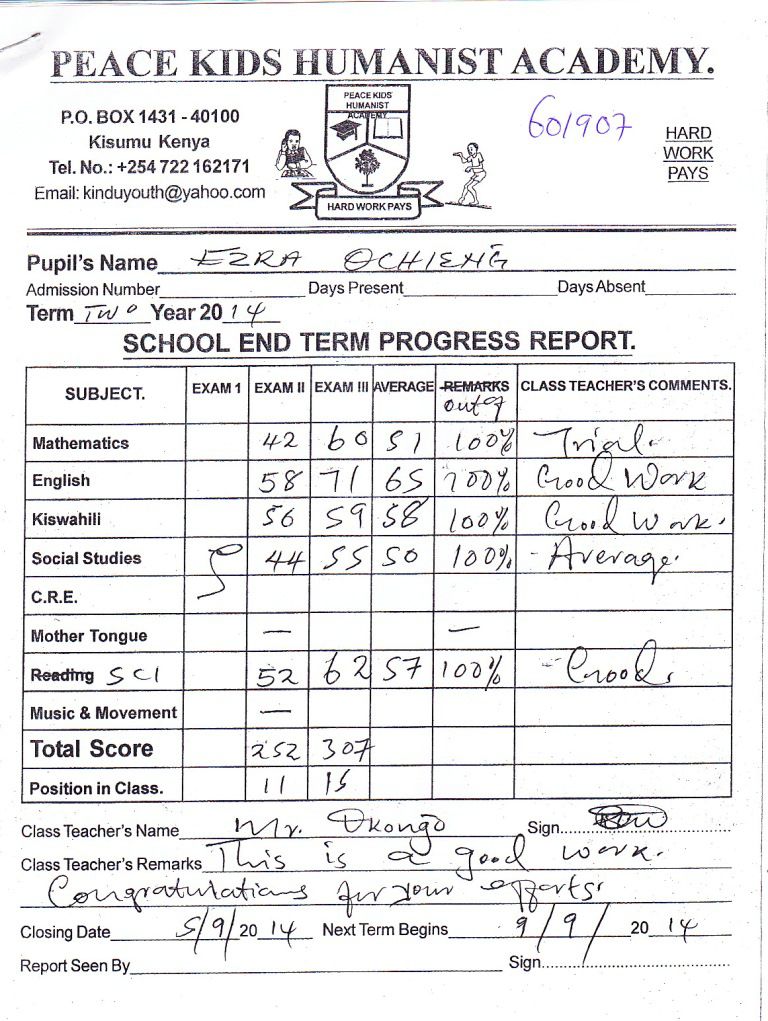 PEACE KIDS HUMANIST ACADEMY.
P.O. BOX 1431 - 40100
Kisumu Kenya
Tel. No.: +254 722 162171
Email: kinduyouth@yahoo.com
PEACE KIDS'
HUMANIST
ACADEMY
HARD WORK PAYS
601907
HARD
WORK
PAYS
Pupil's Name EZRA OCHIENG
Admission Number Days Present Days Absent
Term TWO Year 2014
SCHOOL END TERM PROGRESS REPORT.
SUBJECT. EXAM 1 EXAM II EXAM III AVERAGE REMARKS CLASS TEACHER'S COMMENTS.
out of
Mathematics 42 60 51 100% Trial.
English 58 71 65 100% Good Work
Kiswahili 56 59 58 100% Good Work.
Social Studies 44 55 50 100% - Average.
C.R.E.
Mother Tongue — —
Reading SCI 52 62 57 100% - Good.
Music & Movement —
Total Score 252 307
Position in Class. 11 15
Class Teacher's Name Mr. Okongo Sign
Class Teacher's Remarks This is a good work.
Congratulations for your efforts.
Closing Date 5/9/2014 Next Term Begins 9/9/2014
Report Seen By Sign